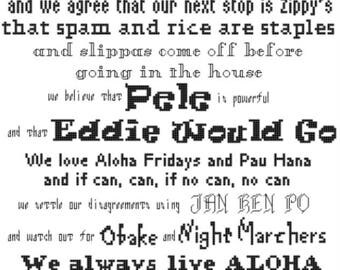 and we agree that our next stop is Zippy's
that spam and rice are staples
and slippas come off before
going in the house
we believe that Pele is powerful
and that Eddie Would Go
We love Aloha Fridays and Pau Hana
and if can, can, if no can, no can
we settle our disagreements using JAN KEN PO
and watch out for Obake and Night Marchers
We always live ALOHA